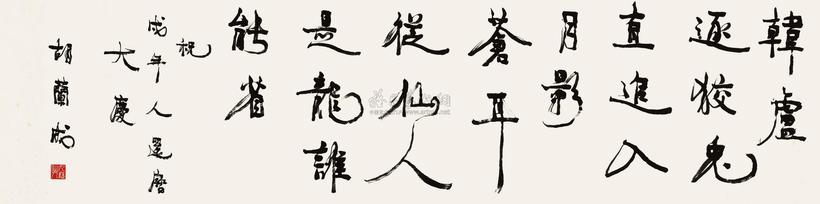 韓盧
逐狡兔
直進入
月影
蒼耳
從仙人
是龍誰
能省
祝
戌年人還曆
大慶
胡蘭成